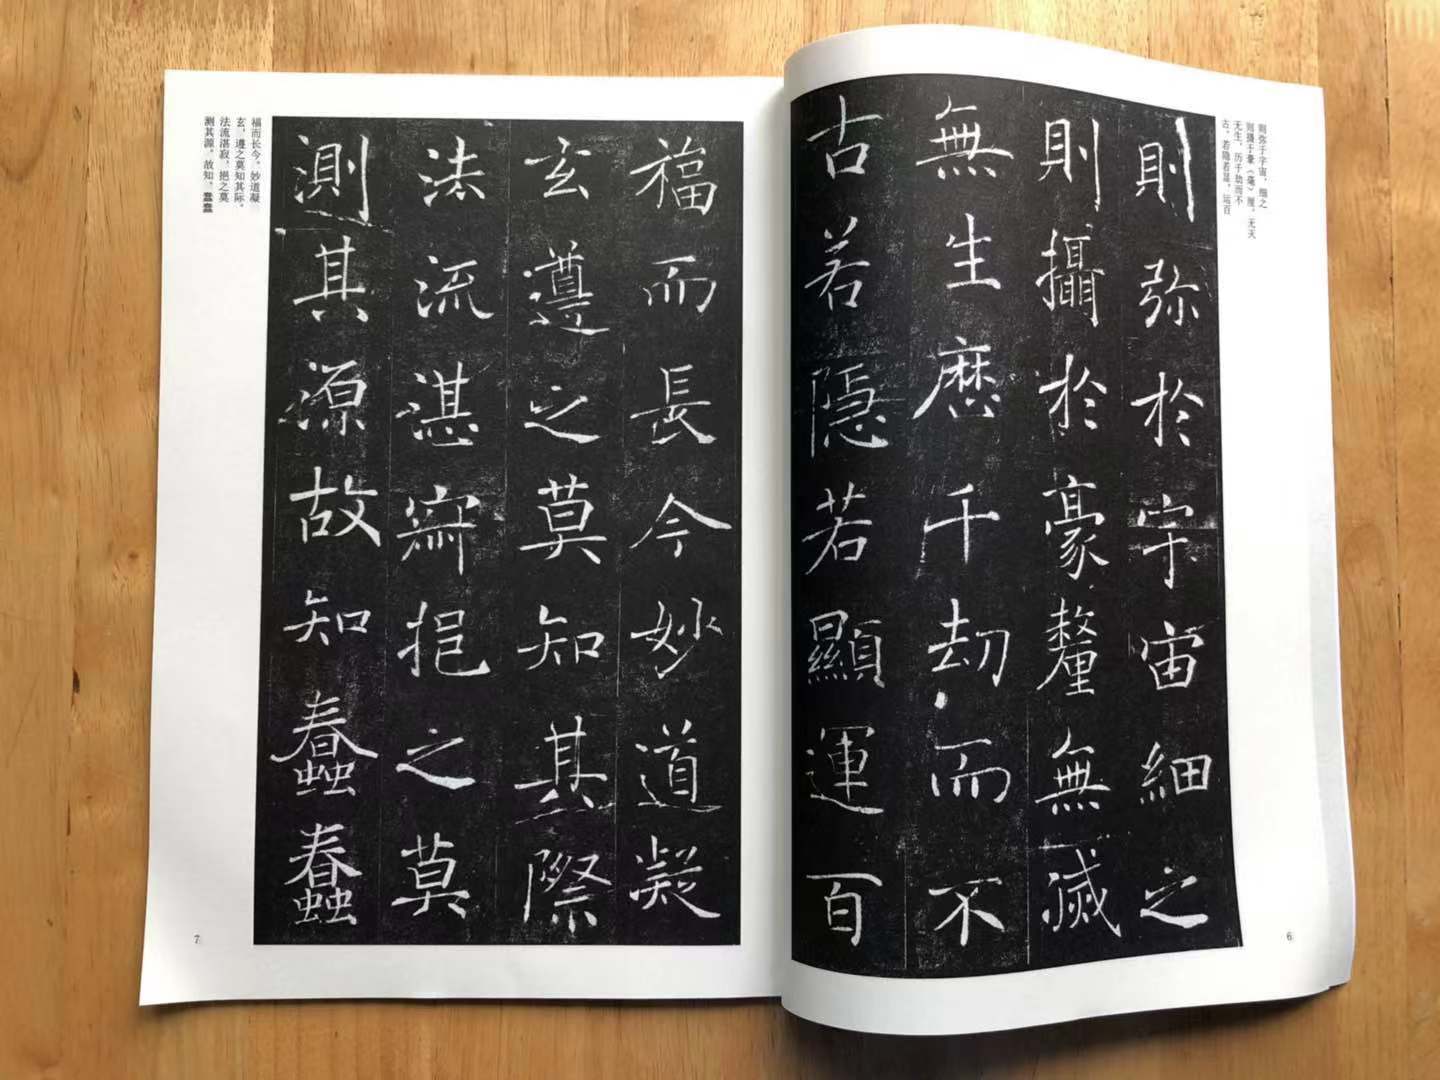 则弥于宇宙,细之
则摄于豪(毫)厘。无灭
无生,历千劫而不
古;若隐若显,运百
則弥於宇宙細之
則攝於豪釐無滅
無生歷千劫而不
古若隱若顯運百
6
福而長今妙道凝
玄遵之莫知其際
法流湛寂挹之莫
測其源故知蠢蠢
福而长今。妙道凝
玄,遵之莫知其际,
法流湛寂,挹之莫
测其源。故知,蠢蠢
7